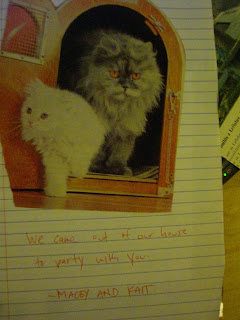 We came out of our house
to party with you.
~MACEY AND KAIT